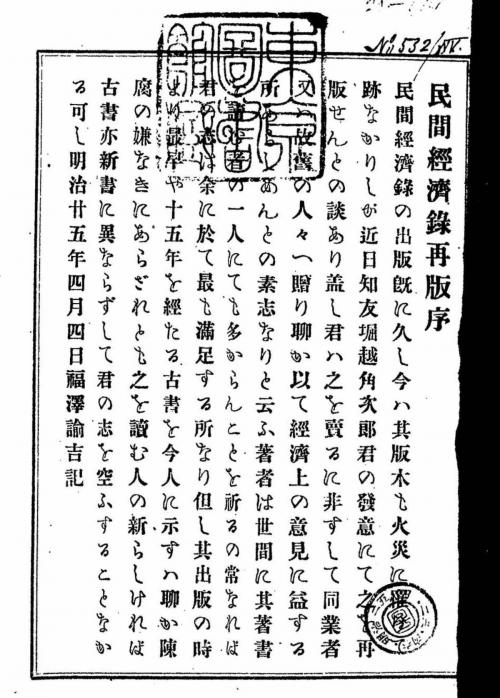 No. 532/XV.
民間經濟錄再版序
民間經濟錄の出版旣に久し今ハ其版木も火災に罹
跡なかりしが近日知友堀越角次郎君の發意にて之を再
版せんとの談あり盖し君ハ之を賣るに非ずして同業者
又ハ故舊の人々へ贈り聊か以て經濟上の意見に益する
所あらしめんとの素志なりと云ふ著者は世間に其著書
を讀む者の一人にても多からんことを祈るの常なれば
君の志は余に於て最も滿足する所なり但し其出版の時
より最早や十五年を經たる古書を今人に示すハ聊か陳
腐の嫌なきにあらざれとも之を讀む人の新らしければ
古書亦新書に異ならずして君の志を空ふすることなか
る可し明治廿五年四月四日福澤諭吉記